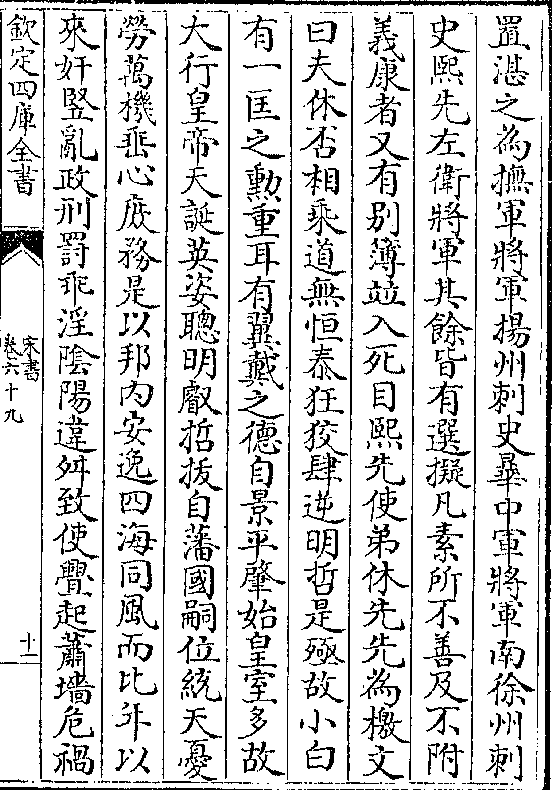 置湛之為撫軍將軍揚州刺史曅中軍將軍南徐州刺
史熙先左衛將軍其餘皆有選擬凡素所不善及不附
義康者又有别簿竝入死目熙先使弟休先先為檄文
曰夫休否相乗道無恒泰狂狡肆逆明哲是殛故小白
有一匡之勲重耳有翼戴之德自景平肇始皇室多故
大行皇帝天誕英姿聰明叡哲拔自藩國嗣位統天憂
勞萬機垂心庶務是以邦内安逸四海同風而比年以
來奸豎亂政刑罰乖淫隂陽違舛致使舋起蕭墻危禍
欽定四庫全書
宋書
卷六十九
十一